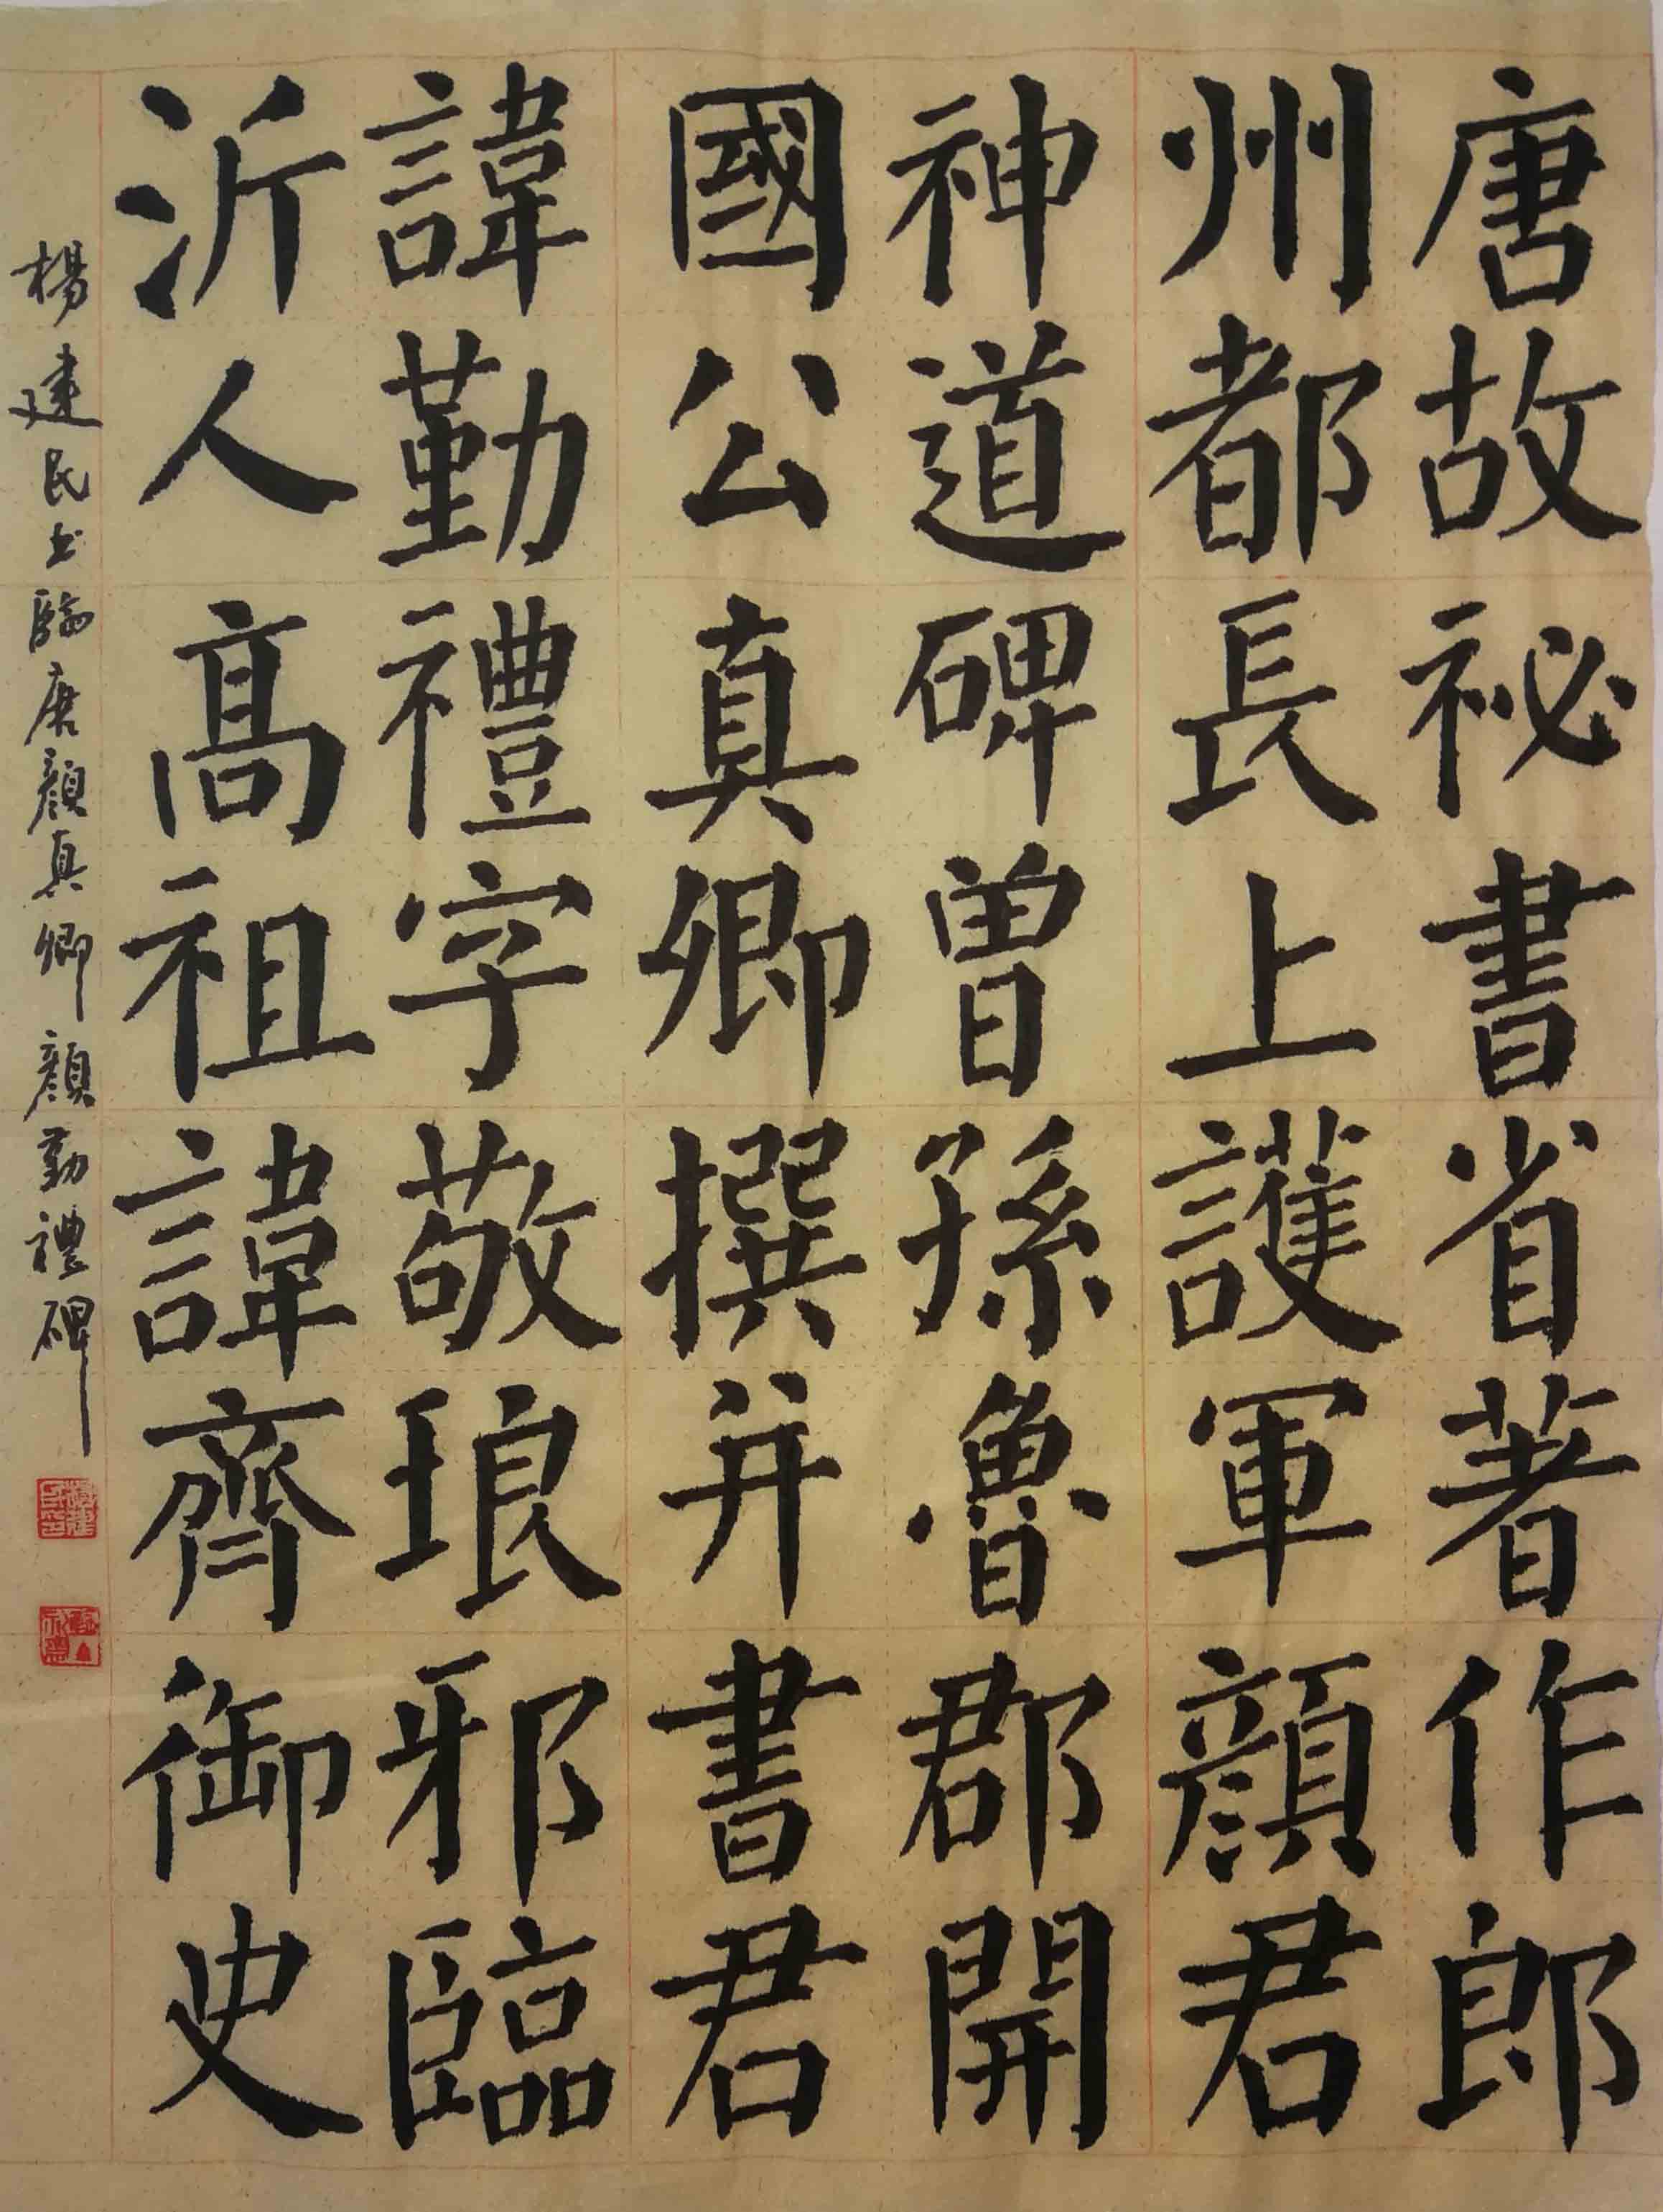 唐故祕書省著作郎
州都長上護軍顏君
神道碑曾孫魯郡開
國公真卿撰并書君
諱勤禮字敬琅邪臨
沂人高祖諱齊御史
楊建民書臨唐顏真卿顏勤禮碑